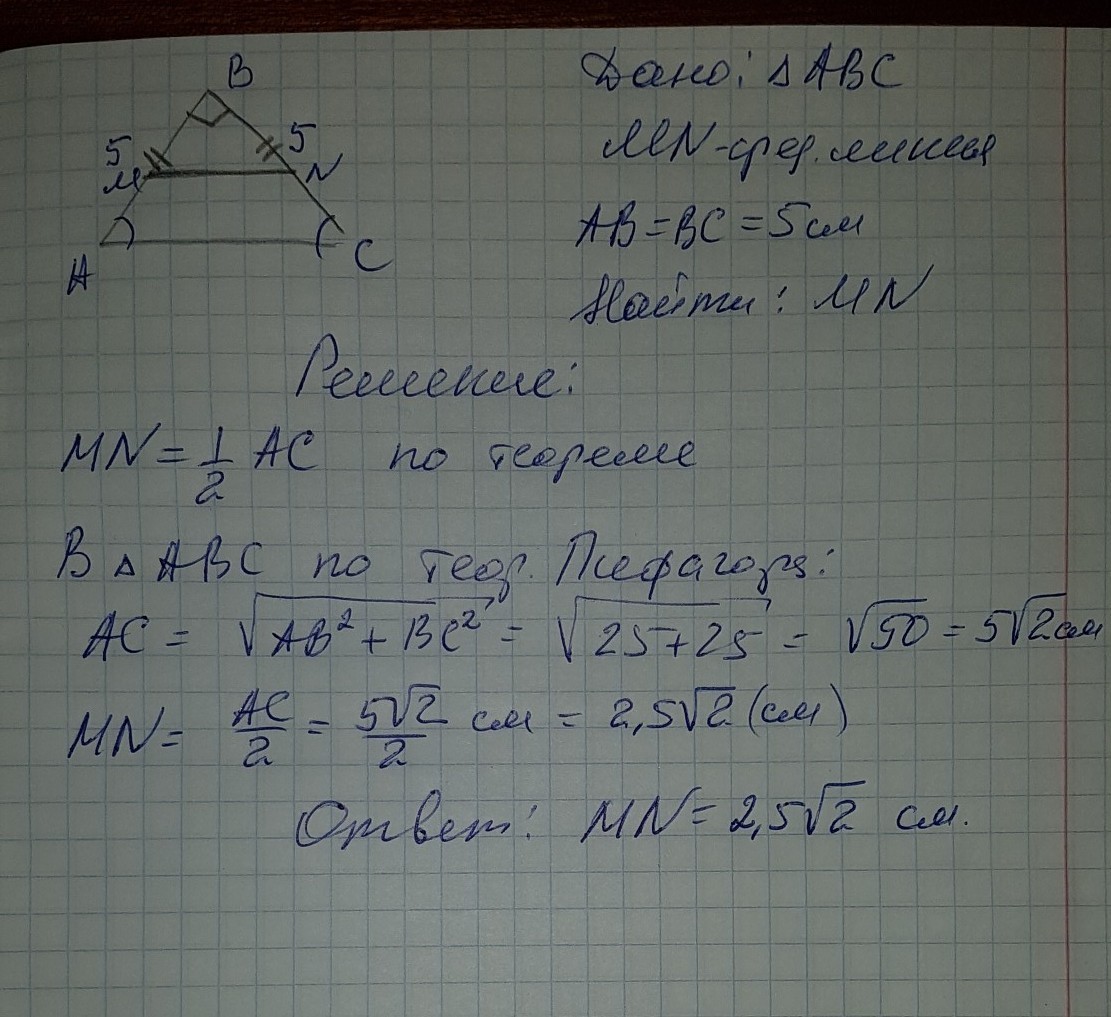 B
5
5
M
N
A
C
Дано: △ ABC
MN-сред. линия
AB = BC = 5 см
Найти: MN
Решение:
MN = 1/2 AC по теореме
В △ ABC по теор. Пифагора:
AC = √(AB² + BC²) = √(25+25) = √50 = 5√2 см
MN = AC/2 = 5√2/2 см = 2,5√2 (см)
Ответ: MN = 2,5√2 см.